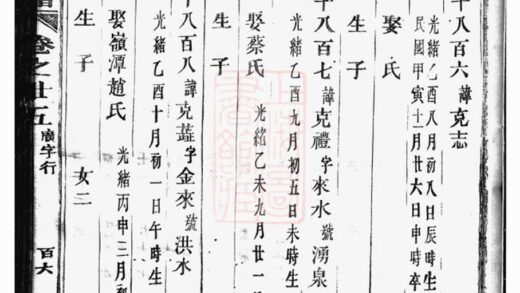 千八百六 諱克志
光緒乙酉八月初八日辰時生
民國甲寅十一月廿六日申時卒
娶 氏
生 子
千八百七 諱克禮 字來水 號湧泉
光緒乙酉九月初五日未時生
娶蔡氏 光緒乙未九月廿一
生 子
千八百八 諱克 字金來 號洪水
光緒乙酉十月初一日午時生
娶嶺潭趙氏 光緒丙申二月初
生 子 女二
譜 卷之廿五 字行 百六